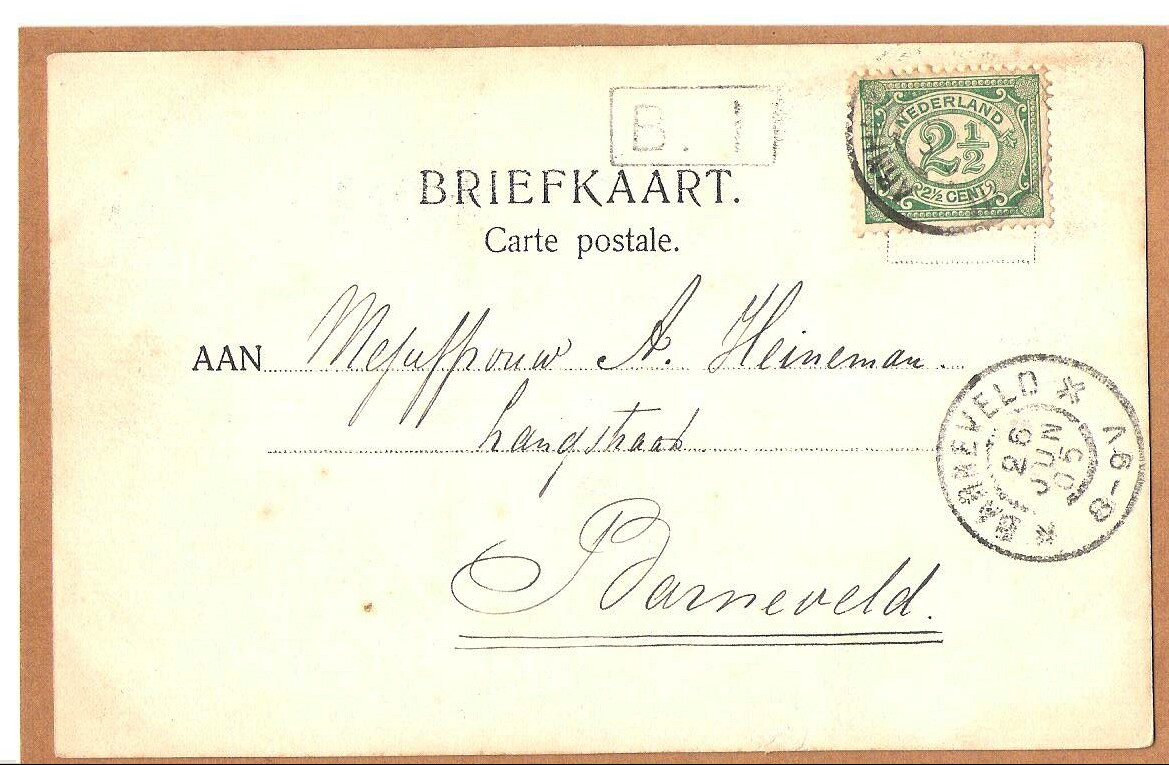 B. 1
NEDERLAND
2 1/2
2½ CENT
BRIEFKAART.
Carte postale.
AAN Mejuffrouw A. Heineman.
Langstraat
Barneveld.
BARNEVELD
26
JUN
05
6-8V